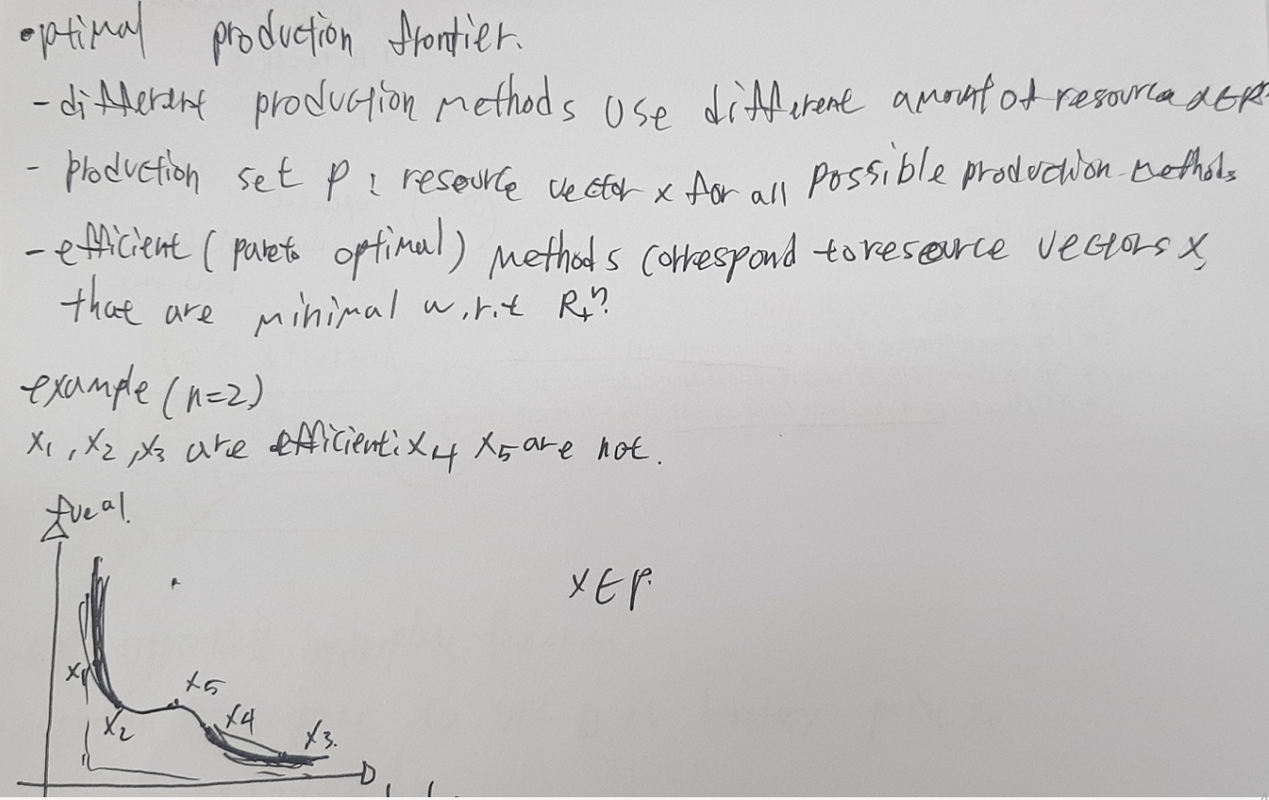 optimal production frontier.
- different production methods use different amount of resource x∈R
- production set P : resource vector x for all possible production methods
- efficient (pareto optimal) methods correspond to resource vectors x,
that are minimal w.r.t R₊ⁿ
example (n=2)
x₁, x₂, x₃ are efficient: x4 x5 are not.
fueal.
x∈p.
x1
x5
x4
x2
x3.